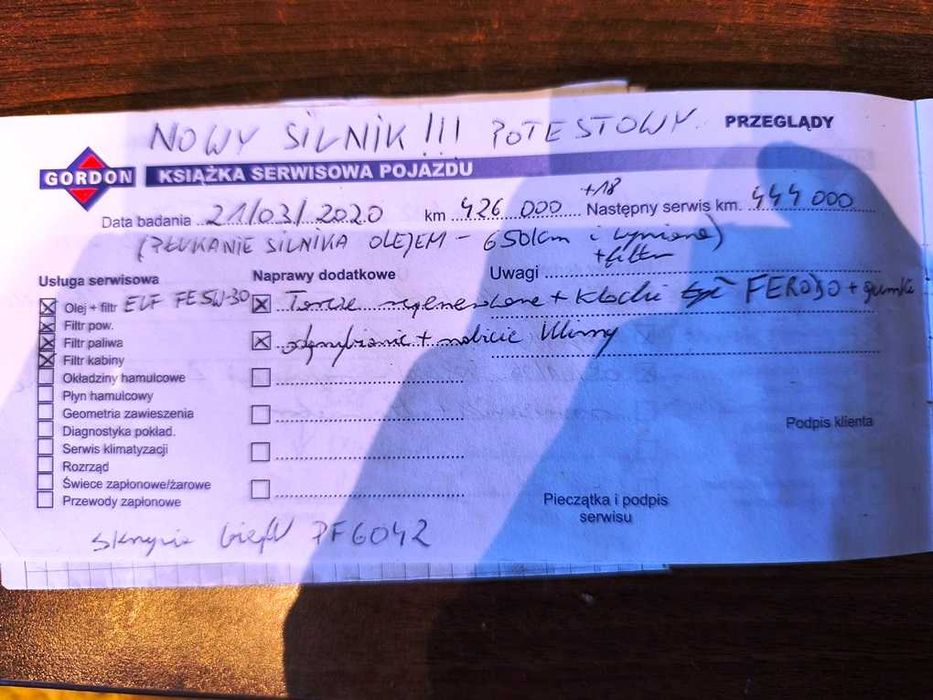 NOWY SILNIK!!! POTESTOWY PRZEGLĄDY
GORDON KSIĄŻKA SERWISOWA POJAZDU
+18
Data badania 21/03/2020 km 426 000 Następny serwis km. 444 000
(PŁUKANIE SILNIKA OLEJEM - 650km i wymiana)
+filtr
Usługa serwisowa Naprawy dodatkowe Uwagi
Olej + filtr ELF FE 5W-30 Tarcze regenerowane + klocki tył FERODO + gumki
Filtr pow.
Filtr paliwa + nabicie klimy
Filtr kabiny
Okładziny hamulcowe
Płyn hamulcowy
Geometria zawieszenia
Diagnostyka pokład. Podpis klienta
Serwis klimatyzacji
Rozrząd
Świece zapłonowe/żarowe
Przewody zapłonowe
Pieczątka i podpis
serwisu
skrzynia biegów PF6042